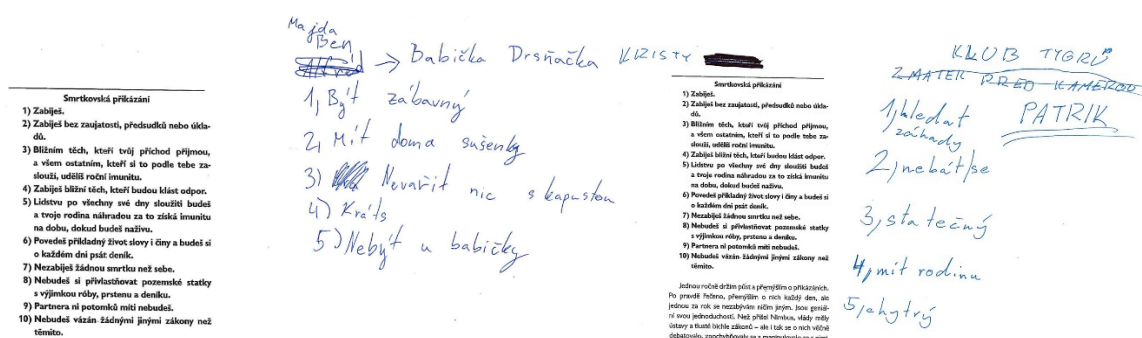 Smrtkovská přikázání
1) Zabiješ.
2) Zabiješ bez zaujatosti, předsudků nebo úkla-
dů.
3) Bližním těch, kteří tvůj příchod přijmou,
a všem ostatním, kteří si to podle tebe za-
slouží, udělíš roční imunitu.
4) Zabiješ bližní těch, kteří budou klást odpor.
5) Lidstvu po všechny své dny sloužiti budeš
a tvoje rodina náhradou za to získá imunitu
na dobu, dokud budeš naživu.
6) Povedeš příkladný život slovy i činy a budeš si
o každém dni psát deník.
7) Nezabiješ žádnou smrtku než sebe.
8) Nebudeš si přivlastňovat pozemské statky
s výjimkou róby, prstenu a deníku.
9) Partnera ni potomků míti nebudeš.
10) Nebudeš vázán žádnými jinými zákony než
těmito.
Majda
Ben
Alfréd → Babička Drsňačka KRISTY
1, Být zábavný
2, Mít doma sušenky
3) Nevařit nic s kapustou
4) Krást
5) Nebýt u babičky
Smrtkovská přikázání
1) Zabiješ.
2) Zabiješ bez zaujatosti, předsudků nebo úkla-
dů.
3) Bližním těch, kteří tvůj příchod přijmou,
a všem ostatním, kteří si to podle tebe za-
slouží, udělíš roční imunitu.
4) Zabiješ bližní těch, kteří budou klást odpor.
5) Lidstvu po všechny své dny sloužiti budeš
a tvoje rodina náhradou za to získá imunitu
na dobu, dokud budeš naživu.
6) Povedeš příkladný život slovy i činy a budeš si
o každém dni psát deník.
7) Nezabiješ žádnou smrtku než sebe.
8) Nebudeš si přivlastňovat pozemské statky
s výjimkou róby, prstenu a deníku.
9) Partnera ni potomků míti nebudeš.
10) Nebudeš vázán žádnými jinými zákony než
těmito.
Jednou ročně držím půst a přemýšlím o přikázáních.
Po pravdě řečeno, přemýšlím o nich každý den, ale
jednou za rok se nezabývám ničím jiným. Jsou geniál-
ní svou jednoduchostí. Než přišel Nimbus, vlády měly
ústavy a tlusté bichle zákonů – ale i tak se o nich věčně
debatovalo, zpochybňovaly se a manipulovalo se s nimi
KLUB TYGRŮ
ZMATEK PŘED KAMEROU
PATRIK
1, hledat
záhady
2, nebát/se
3, statečný
4, mít rodinu
5, chytrý